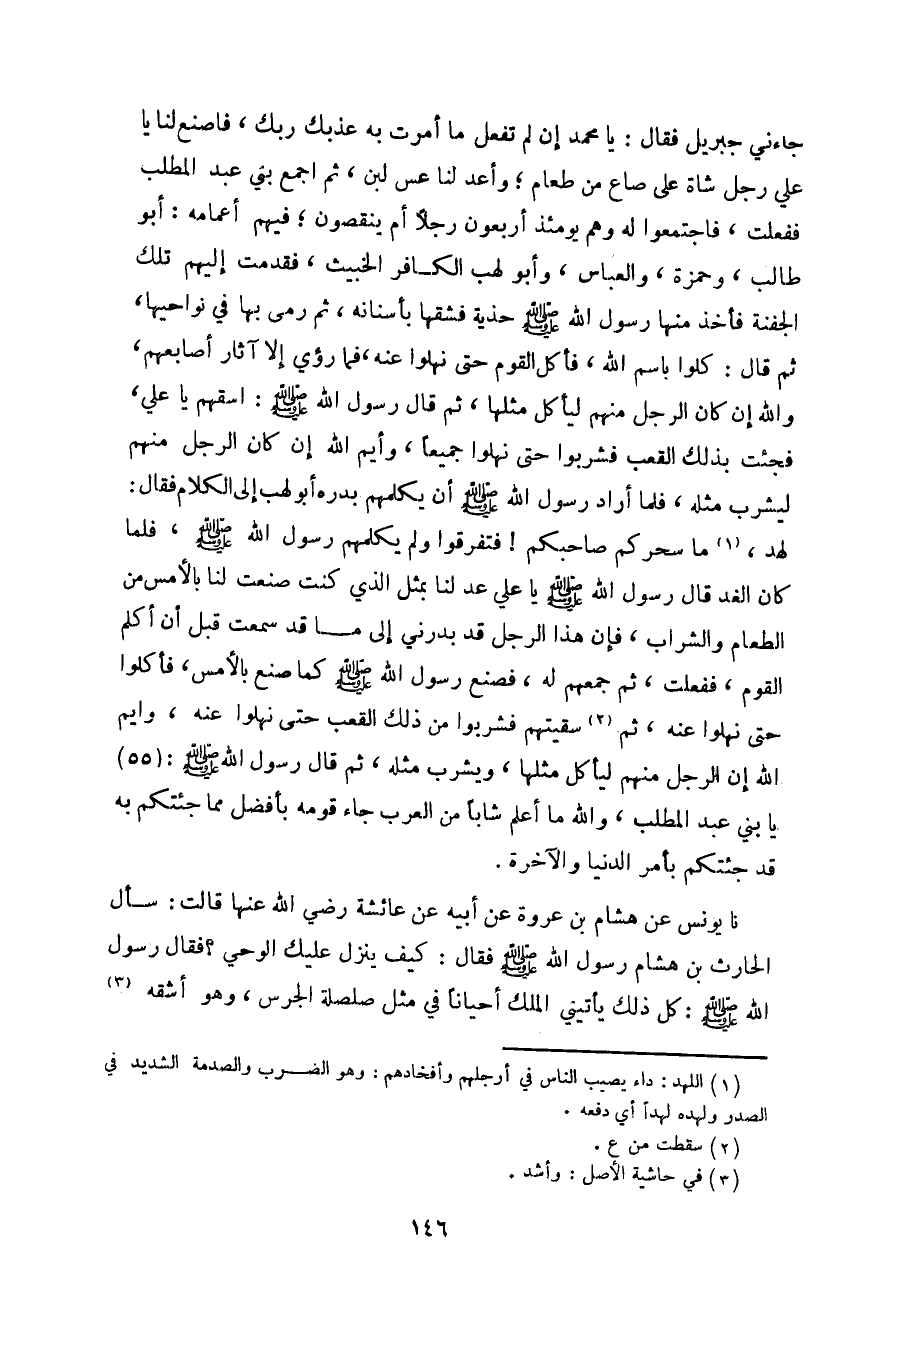 جاءني جبريل فقال : يا محمد إن لم تفعل ما أمرت به عذبك ربك ، فاصنع لنا يا
علي رجل شاة على صاع من طعام ؛ وأعد لنا عس لبن ، ثم اجمع بني عبد المطلب
ففعلت ، فاجتمعوا له وهم يومئذ أربعون رجلاً أم ينقصون ؛ فيهم أعمامه : أبو
طالب ، وحمزة ، والعباس ، وأبو لهب الكافر الخبيث ، فقدمت إليهم تلك
الجفنة فأخذ منها رسول الله ﷺ حذية فشقها بأسنانه ، ثم رمى بها في نواحيها،
ثم قال : كلوا باسم الله ، فأكل القوم حتى نهلوا عنه ، فما رؤي إلا آثار أصابعهم،
والله إن كان الرجل منهم ليأكل مثلها ، ثم قال رسول الله ﷺ : اسقهم يا علي،
فجئت بذلك القعب فشربوا حتى نهلوا جميعاً ، وأيم الله إن كان الرجل منهم
ليشرب مثله ، فلما أراد رسول الله ﷺ أن يكلمهم بدره أبو لهب إلى الكلام فقال :
لهد ، (١) ما سحركم صاحبكم ! فتفرقوا ولم يكلمهم رسول الله ﷺ ، فلما
كان الغد قال رسول الله ﷺ يا علي عد لنا بمثل الذي كنت صنعت لنا بالأمس من
الطعام والشراب ، فإن هذا الرجل قد بدرني إلى ما قد سمعت قبل أن أكلم
القوم ، ففعلت ، ثم جمعهم له ، فصنع رسول الله ﷺ كما صنع بالأمس، فأكلوا
حتى نهلوا عنه ، ثم (٢) سقيتهم فشربوا من ذلك القعب حتى نهلوا عنه ، وايم
الله إن الرجل منهم ليأكل مثلها ، ويشرب مثله ، ثم قال رسول الله ﷺ : (٥٥)
يا بني عبد المطلب ، والله ما أعلم شاباً من العرب جاء قومه بأفضل مما جئتكم به
قد جئتكم بأمر الدنيا والآخرة .
نا يونس عن هشام بن عروة عن أبيه عن عائشة رضي الله عنها قالت : سأل
الحارث بن هشام رسول الله ﷺ فقال : كيف ينزل عليك الوحي ؟ فقال رسول
الله ﷺ : كل ذلك يأتيني الملك أحياناً في مثل صلصلة الجرس ، وهو أشقه (٣)
(١) اللهد : داء يصيب الناس في أرجلهم وأفخادهم : وهو الضرب والصدمة الشديد في
الصدر ولهده لهداً أي دفعه .
(٢) سقطت من ع .
(٣) في حاشية الأصل : وأشد .
١٤٦